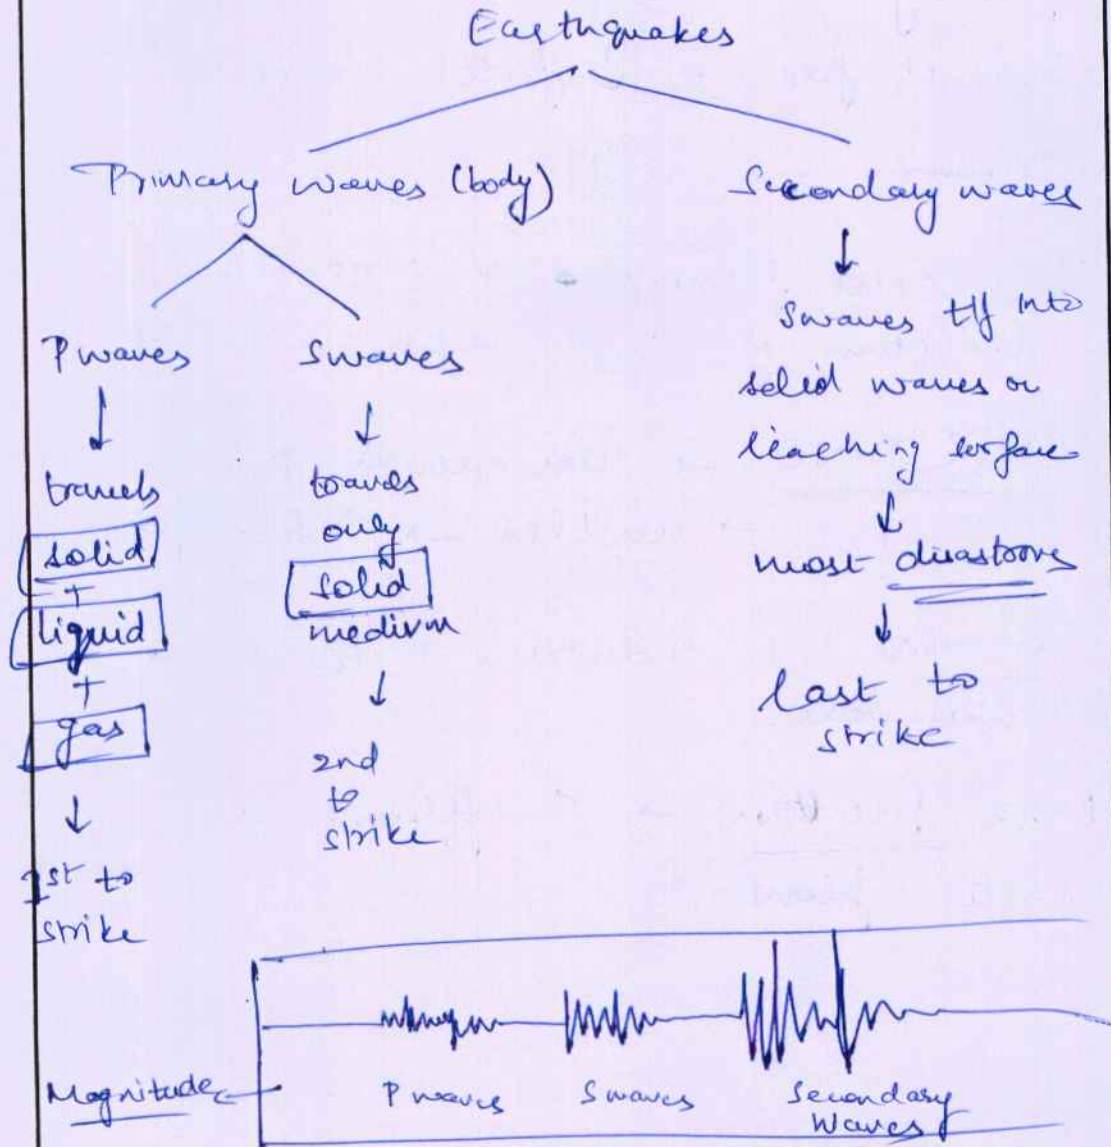 Earthquakes
Primary waves (body)
Secondary waves
P waves
S waves
travels
solid
+
liquid
+
gas
1st to
strike
travels
only
solid
medium
2nd
to
strike
S waves into
solid waves or
reaching surface
most disastrous
last to
strike
Magnitude
P waves
S waves
Secondary
Waves